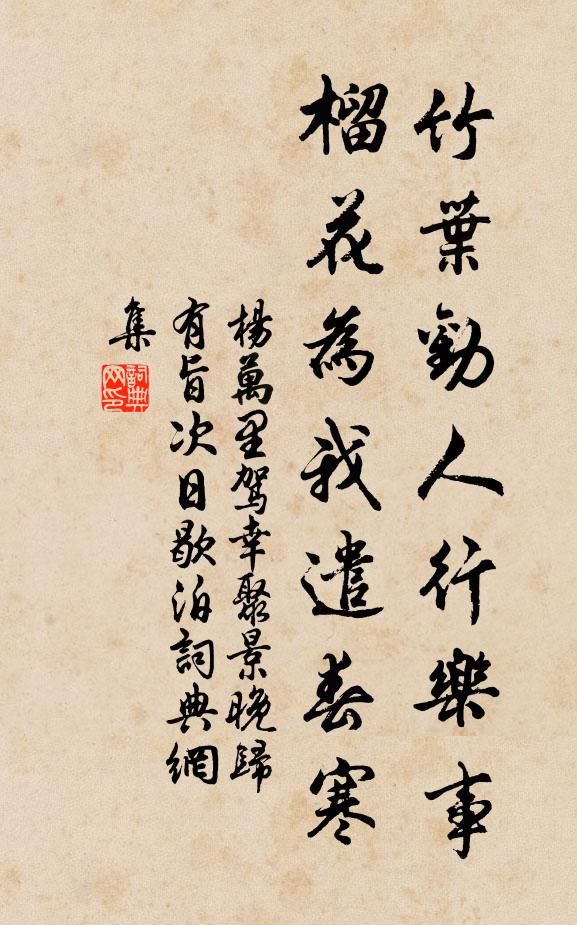 竹葉勸人行樂事
榴花為我遣春寒
楊萬里駕幸聚景晚歸
有旨次日歇泊詞典網
集
詞典
网印